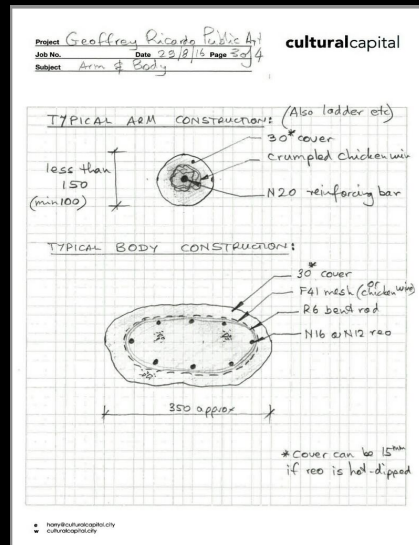 Project Geoffrey Ricardo Public Art
culturalcapital
Job No. Date 29/8/16 Page 3 of 4
Subject Arm & Body
TYPICAL ARM CONSTRUCTION: (Also ladder etc)
30* cover
crumpled chicken wir
N20 reinforcing bar
less than
150
(min 100)
TYPICAL BODY CONSTRUCTION:
30* cover
F41 mesh (or chicken wire)
R6 bent rod
N16 or N12 reo
350 approx
* Cover can be 15mm
if reo is hot-dipped
e harry@culturalcapital.city
w culturalcapital.city